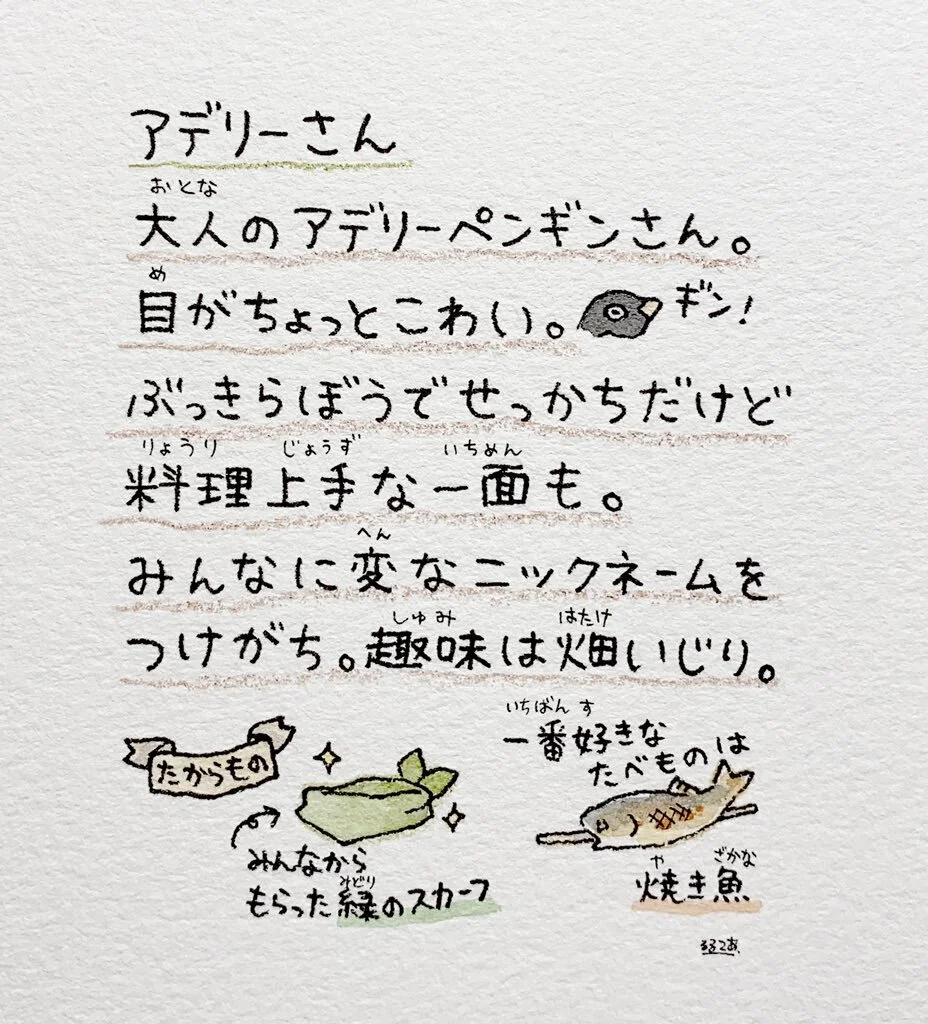 アデリーさん
おとな
大人のアデリーペンギンさん。
め
目がちょっとこわい。 ギン!
ぶっきらぼうでせっかちだけど
りょうり じょうず いちめん
料理上手な一面も。
へん
みんなに変なニックネームを
しゅみ はたけ
つけがち。趣味は畑いじり。
たからもの
みんなから
みどり
もらった緑のスカーフ
いちばん す
一番好きな
たべものは
や ざかな
焼き魚
るるてあ